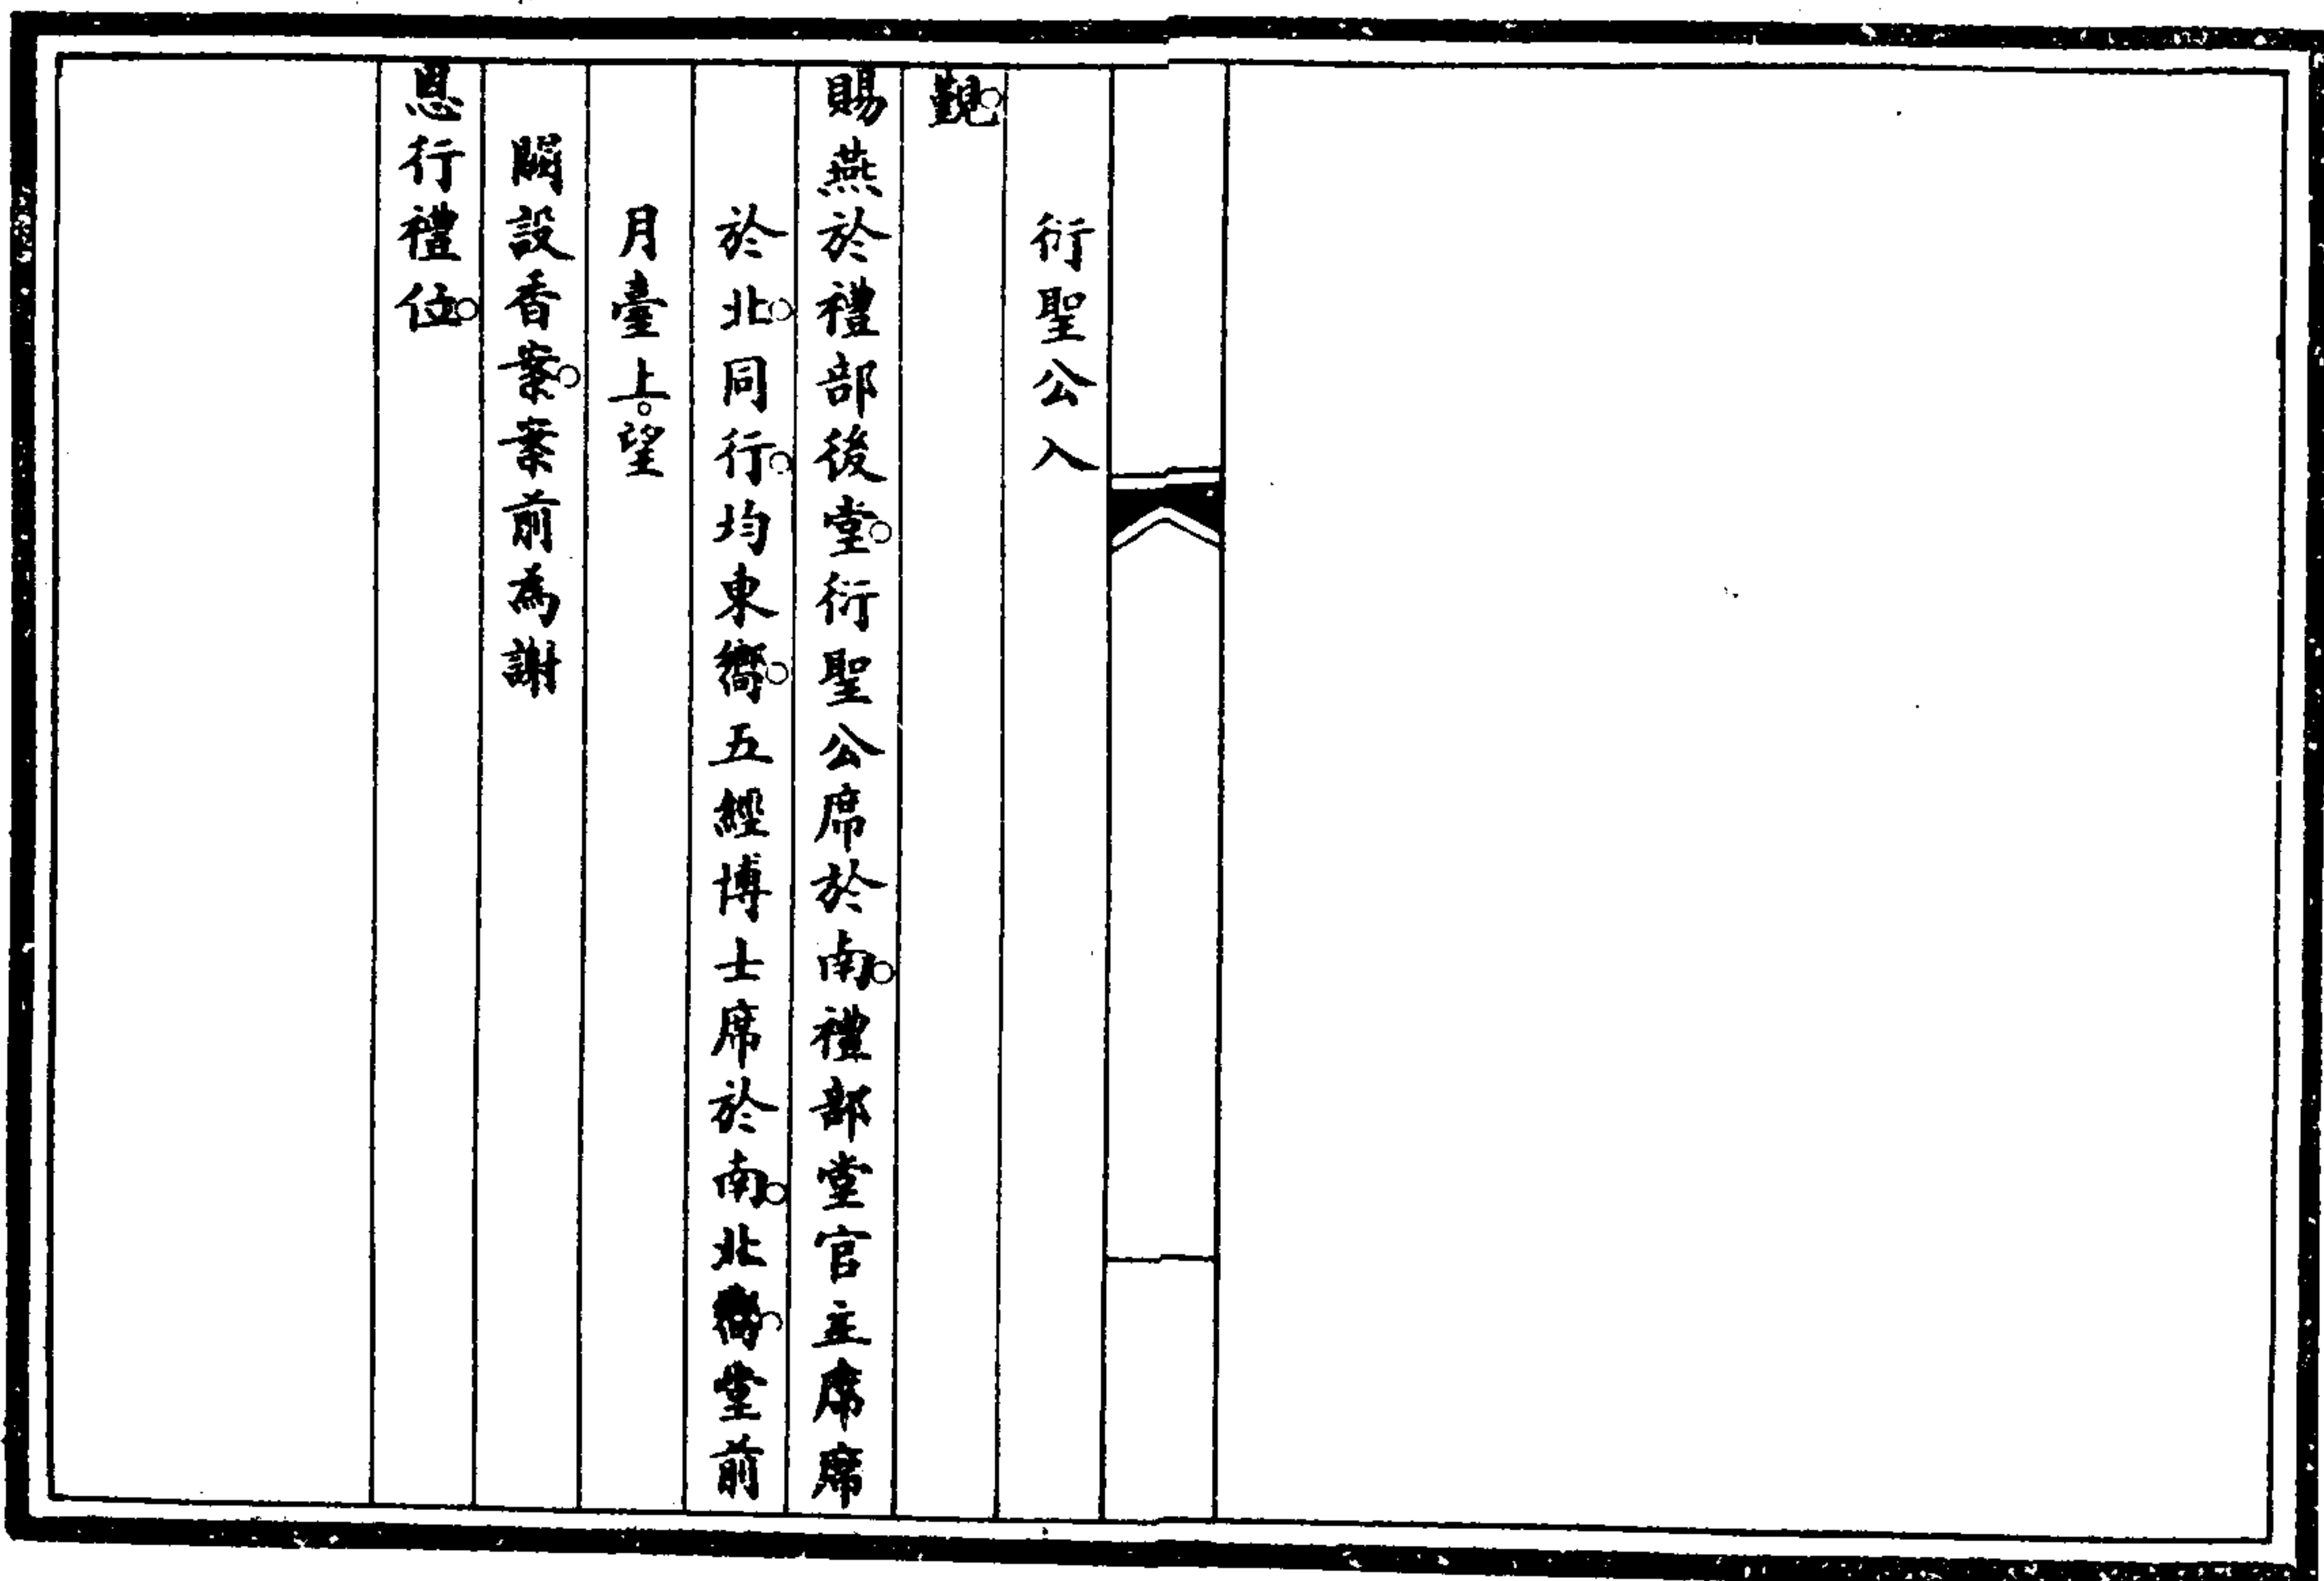 衍聖公入
覲。
賜燕於禮部後堂。衍聖公席於南。禮部堂官主席席
於北。同行。均東嚮。五經博士席於南。北嚮。堂前
月臺上。望
闕設香案。案前為謝
恩行禮位。